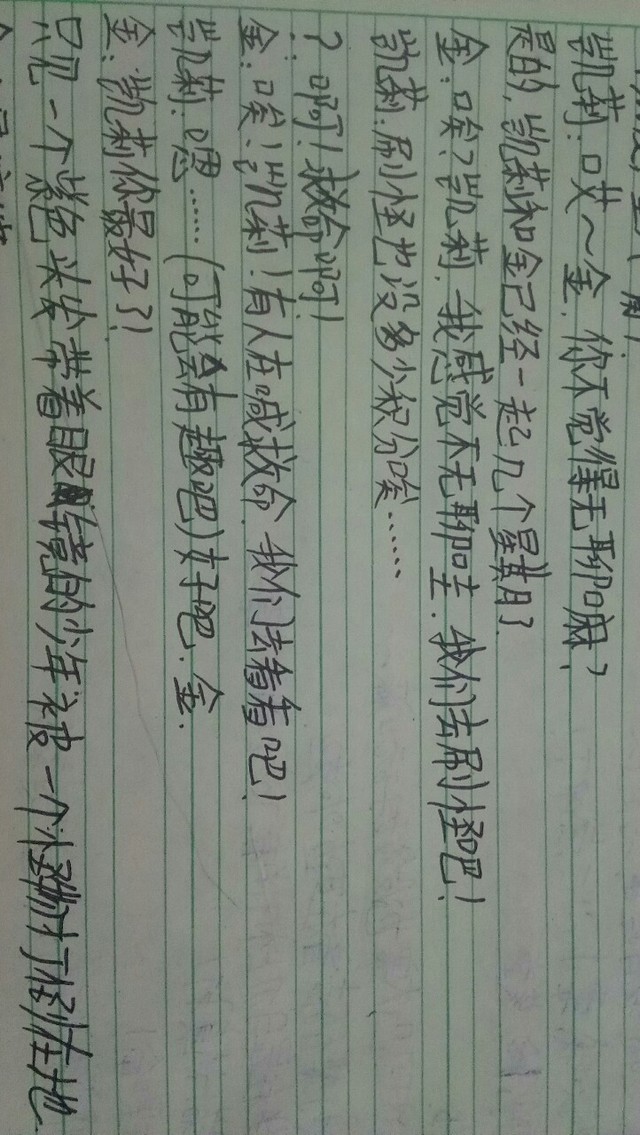 凯莉：哎～金，你不觉得无聊嘛？
是的，凯莉和金已经一起几个星期了．
金：唉？凯莉，我感觉不无聊哇．我们去刷怪吧！
凯莉：刷怪也没多少积分唉……
？：啊！救命啊！
金：唉！凯莉！有人在喊救命．我们去看看吧！
凯莉：嗯……（可能会有趣吧）好吧．金．
金：凯莉你最好了！
只见一个紫色头发带着眼镜的少年被一个怪物打倒在地